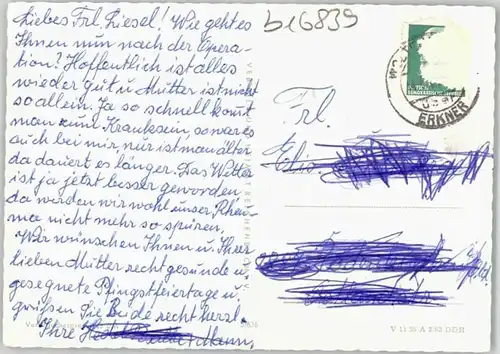 Liebes Frl. Liesel! Wie geht es
Ihnen nun nach der Opera-
tion? Hoffentlich ist alles
wieder gut u. Mutter ist nicht
so allein. Ja so schnell kommt
man zum Kranksein, so war es
auch bei mir, nur ist man älter
da dauert es länger. Das Wetter
ist ja jetzt besser geworden
da würden wir wohl unser Rheu-
ma nicht mehr so spüren.
Wir wünschen Ihnen u. Ihrer
lieben Mutter recht gesunde u.
gesegnete Pfingstfeiertage u.
grüßen Sie Beide recht herzl.
Ihre
b16839
ERKNER
Frl.
V 11 28 A 2/62 DDR